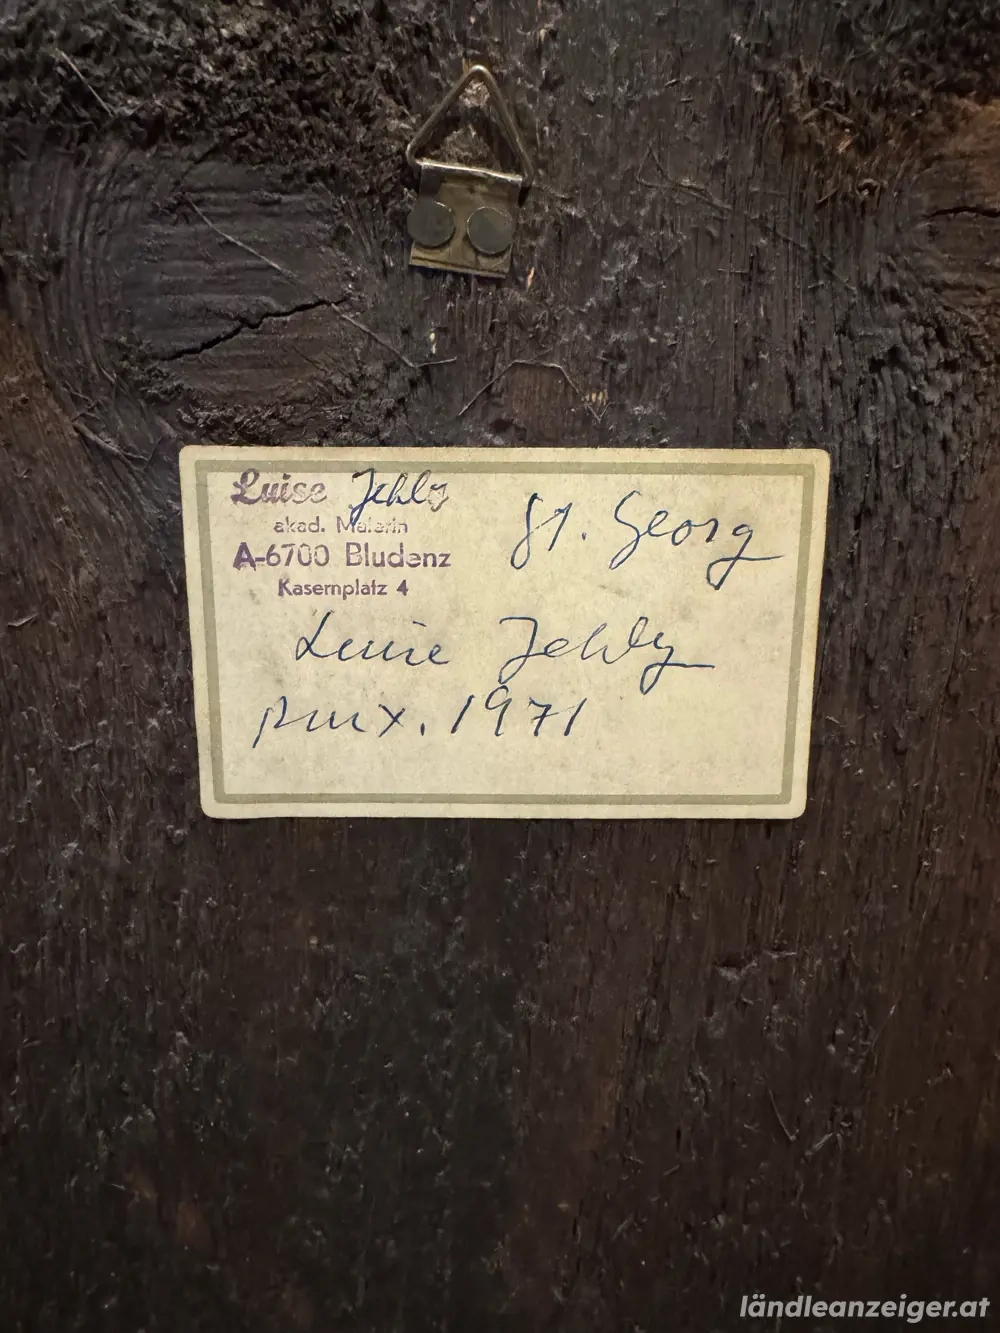 Luise Jehly
akad. Malerin
A-6700 Bludenz
Kasernplatz 4
St. Georg
Luise Jehly
pinx. 1971
ländleanzeiger.at